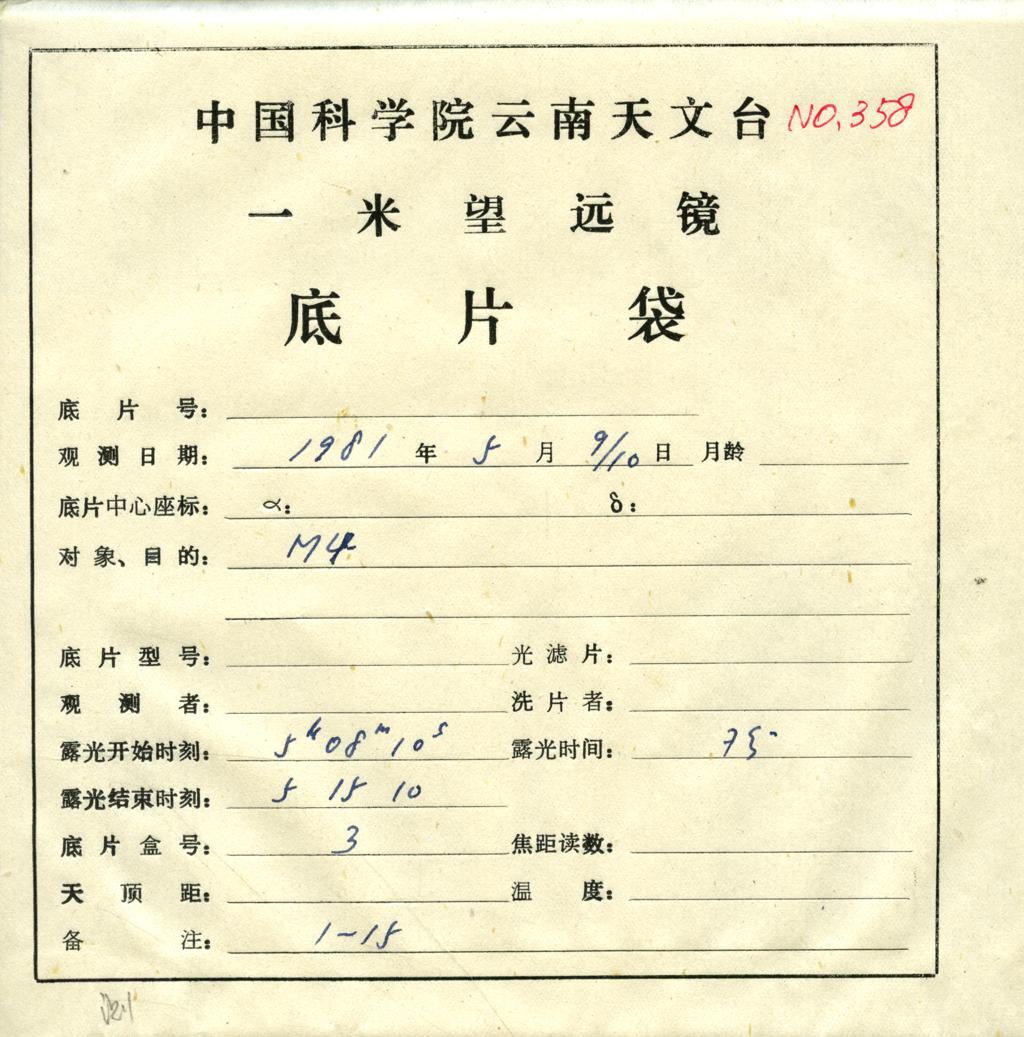 中国科学院云南天文台 NO.358
一米望远镜
底片袋
底片号：
观测日期： 1981 年 5 月 9/10 日 月龄
底片中心座标： α： δ：
对象、目的： M4
底片型号： 光滤片：
观测者： 洗片者：
露光开始时刻： 5h08m10s 露光时间：
露光结束时刻： 5 15 10
底片盒号： 3 焦距读数：
天顶距： 温度：
备注： 1-15